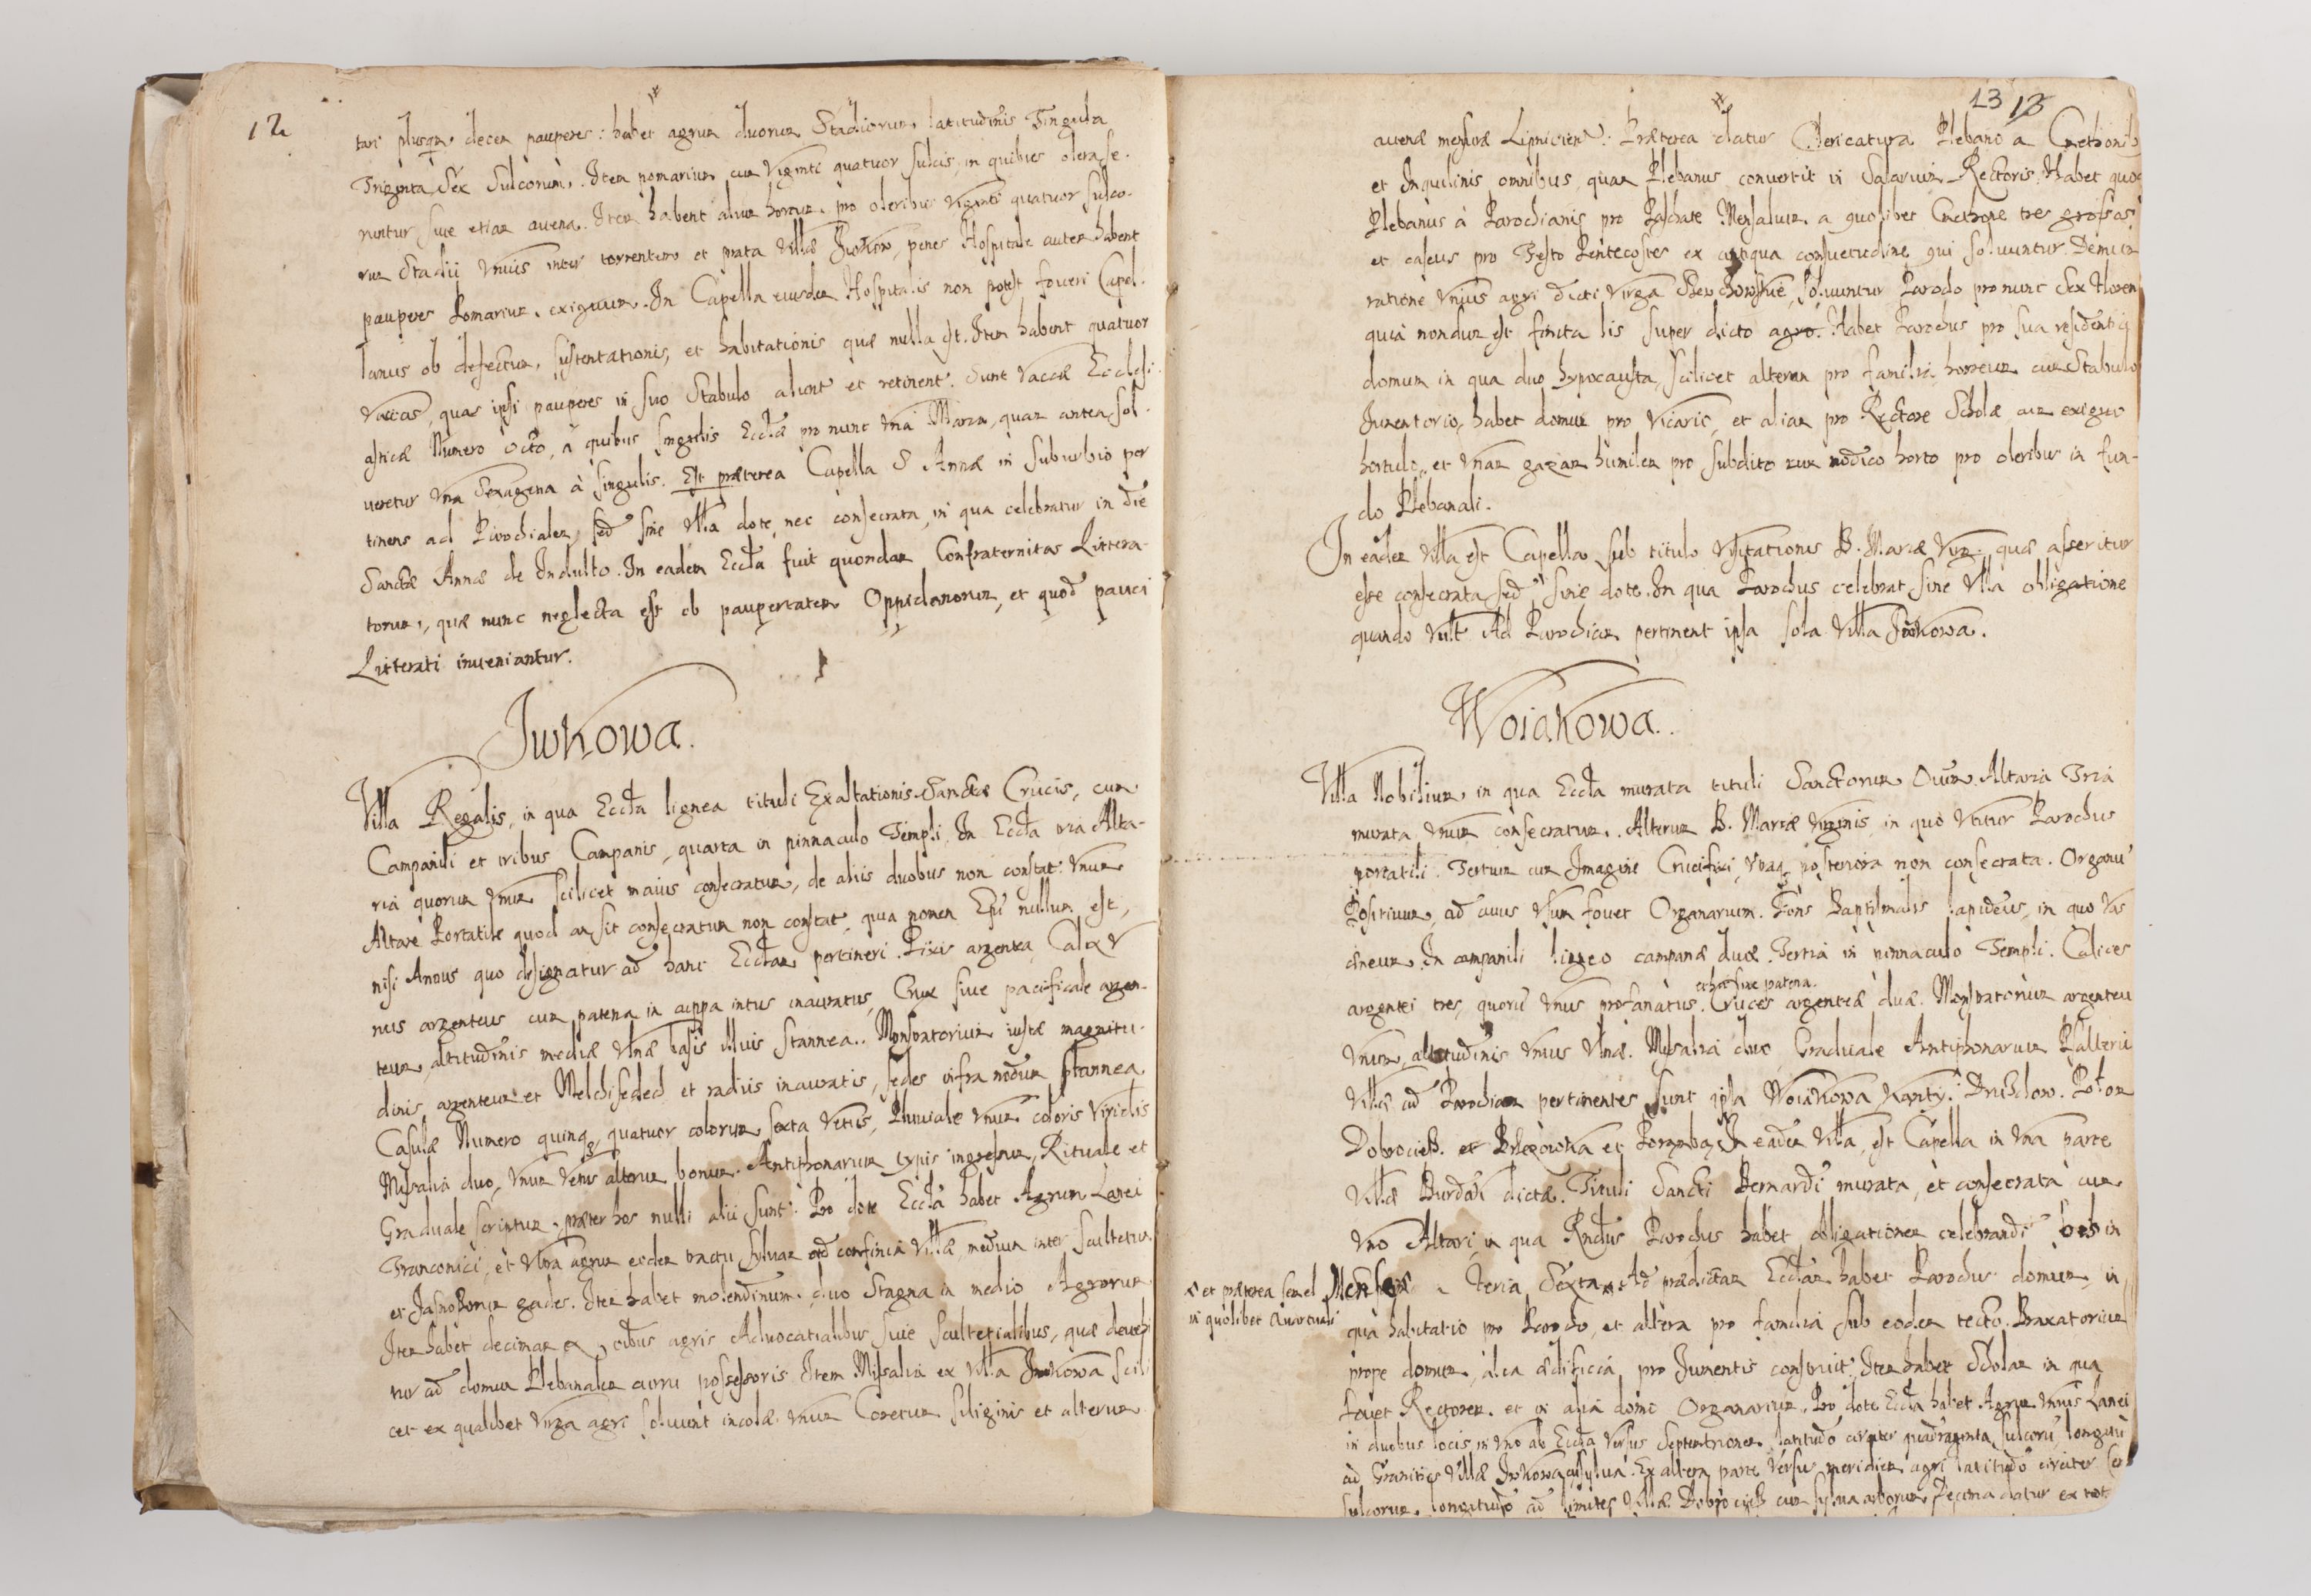 12
tari plusqr decem pauperes: habet agrum duorum Stadiorum latitudinis Singula
Triginta Sex Sulcorum. Item pomarium cum Viginti quatuor sulcis, in quibus olera se-
runtur siue etiam auena. Item habent aliud hortum pro oleribus viginti quatuor sulco-
rum Stadii vnius inter torrentem et prata Villæ Iwkow, penes Hospitale autem habent
pauperes Pomarium exiguum. In Capella eiusdem Hospitalis non potest foueri Capel-
lanus ob defectum sustentationis, et habitationis quæ nulla est. Item habent quatuor
vaccas, quas ipsi pauperes in suo Stabulo alunt et retinent. Sunt vaccæ Ecclesi-
asticæ Numero Octo, à quibus singulis Eccliæ pro nunc vna Marca, quam antea sol-
ueretur vna Sexagena à singulis. Est præterea Capella S. Annæ in suburbio per
tinens ad Parochialem, sed sine vlla dote, nec consecrata, in qua celebratur in die
Sanctæ Annæ de Indulto. In eadem Ecclia fuit quondam Confraternitas Littera-
torum, quæ nunc neglecta est ob paupertatem Oppidanorum, et quod pauci
Litterati inueniantur.
Iwkowa.
Villa Regalis, in qua Ecclia lignea tituli Exaltationis Sanctæ Crucis, cum
Campanili et tribus Campanis, quarta in pinnaculo Templi. In Ecclia tria Alta-
ria quorum vnum scilicet maius consecratum, de aliis duobus non constat. vnum
Altare Portatile quod an sit consecratum non constat, quia nomen Epi nullum est,
nisi Annus quo designatur ad hanc Eccliam pertineri. Pixis argentea, Calix v-
nus argenteus cum patena in cuppa intus inauratus, Crux siue pacificale argen-
teum, altitudinis mediæ vlnæ basis illius stannea. Monstratorium iustæ magnitu-
dinis argenteum et Melchisedech et radiis inauratis, sedes infra nodum stannea
Casulæ Numero quinq, quatuor colorum, sexta vetus, Pluuiale vnum coloris viridis
Missalia duo, vnum vetus alterum bonum. Antiphonarium typis ingressum, Rituale et
Graduale scriptum, præter hos nulli alii sunt. Pro dote Ecclia habet Agrum Lanei
Franconici, et vltra agrum eodem tractu syluam ad confinia villæ, medium inter scultetum
et Jasno gades. Item habet molendinum, duo Stagna in medio Agrorum
Item habet decimam ex oibus agris Aduocatialibus siue scultetialibus, quæ deuehi
tur ad domum Plebanalem curru possessoris. Item Missalia ex villa Iwkowa scili
cet ex qualibet virga agri soluunt incolæ vnum Coretum siliginis et alterum
13 13
auenæ mensuræ Lipnicien. Præterea datur Clericatura Plebano a Cmethonib
et Inquilinis omnibus, quam Plebanus conuertit in Salarium Rectoris. Habet quoq
Plebanus à Parochianis pro Paschate Mensalium a quolibet Cmethone tres grossos
et caseus pro Festo Pentecostes ex antiqua consuetudine qui soluuntur. Demum
ratione vnius agri dicti virga soluuntur Parocho pro nunc Sex floren
quia nondum est finita lis super dicto agro. Habet Parochus pro sua residentia
domum in qua duo hypocausta, scilicet alterum pro familia, horreum cum Stabulo
Iumentorio, habet domum pro Vicario, et aliam pro Rectore Scholæ cum exiguo
hortulo, et vnam gazam humilem pro subdito cum modico horto pro oleribus in fun-
do Plebanali.
In eadem villa est Capella sub titulo Visitationis B. Mariæ Virg. quæ asseritur
esse consecrata sed sine dote. In qua Parochus celebrat sine vlla obligatione
quando vult. Ad Parochiam pertinent ipsa sola Villa Iwkowa.
Woiakowa.
Villa Nobilium, in qua Ecclia murata tituli Sanctorum Oium. Altaria Tria
murata vnum consecratum. Alterum B. Mariæ Virginis, in quo vtitur Parochus
portatili. Tertium cum Imagine Crucifixi, vtraq posteriora non consecrata. Organu
Positiuum, ad cuius vsum fouet Organarium. Fons Baptismalis lapideus, in quo vas
æneum. In campanili ligneo campanæ duæ. Tertia in pinnaculo Templi. Calices
et hic sine patena.
argentei tres, quoru vnus profanatus. Cruces argenteæ duæ. Monstratorium argenteu
vnum, altitudinis vnius vlnæ. Missalia duo, Graduale Antiphonarium Psalteriu
Villæ ad Parochiam pertinentes sunt ipsa Woiakowa Kąnty. Druschow. Połom
Dobrociesz. et et Porąmba. In eadem villa, est Capella in vna parte
Villæ dictæ. Tituli Sancti Bernardi murata, et consecrata cum
vno Altari, in qua Rndus Parochus habet obligationem celebrandi bis in
æ et præterea semel
in quolibet Quartuali
Mense feria sexta. Ad prædictam Eccliam habet Parochus domum, in
qua habitatio pro Parocho, et altera pro familia sub eodem tecto. Braxatorium
prope domum, alia ædificia pro Iumentis construit. Item habet Scholam in qua
fouet Rectorem, et in alia domo Organarium. Pro dote Ecclia habet Agrum vnius Lanei
in duobus locis, in vno ab Ecclia versus Septentrionem, latitudo circiter quadraginta sulcoru, longitu
ad Granities Villæ Iwkowa cu sylua. Ex altera parte versus meridiem agri latitudo circiter
sulcorum, longitudo ad limites Villæ Dobrociesz cum sylua arborum. Decima datur ex tot